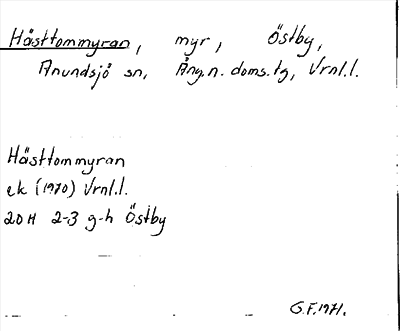 Hästtommyran, myr, Östby,
Anundsjö sn, Ång.n. doms.tg, Vrnl.l.
Hästtommyran
ek (1970) Vrnl.l.
20H 2-3 g-h Östby
G.F.1971.